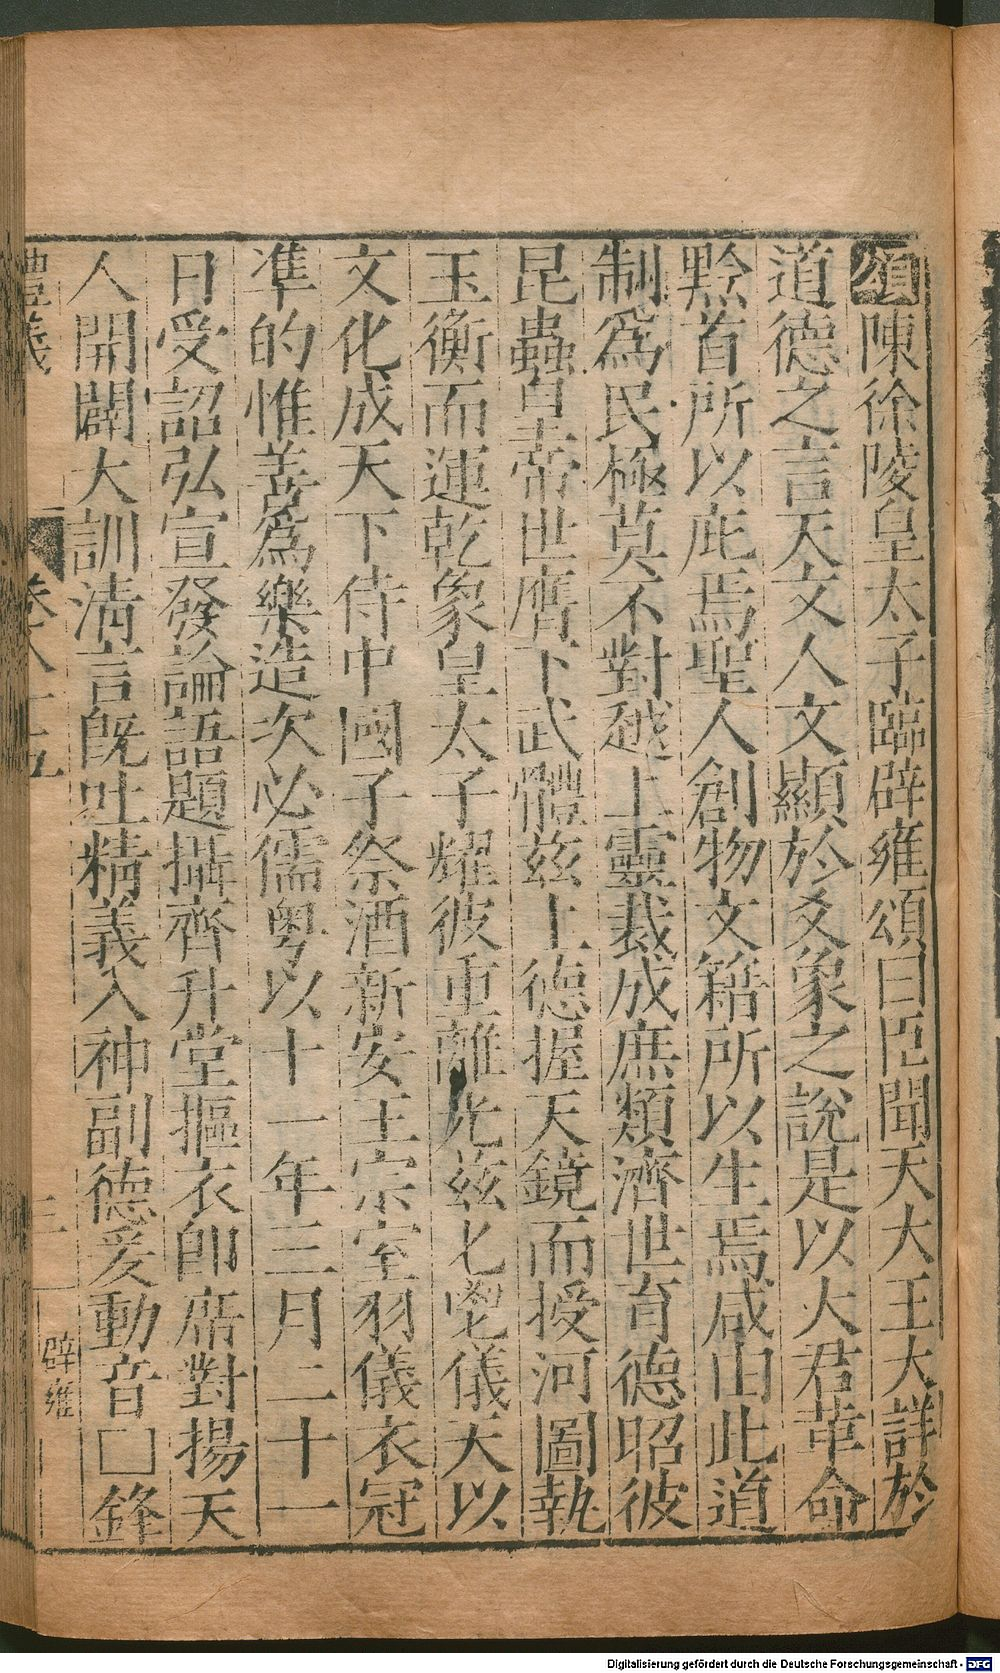 頌陳徐陵皇太子臨辟雍頌曰臣聞天大王大詳於
道德之言天文人文顯於爻象之說是以大君革命
黔首所以庇焉聖人創物文籍所以生焉咸由此道
制爲民極莫不對越上靈裁成庶類濟世育德昭彼
昆蟲皇帝世膺下武體茲上德握天鏡而授河圖執
玉衡而運乾象皇太子耀彼重離光茲匕鬯儀天以
文化成天下侍中國子祭酒新安王宗室羽儀衣冠
準的惟善爲樂造次必儒粤以十一年三月二十一
日受詔弘宣發論語題攝齊升堂摳衣即席對揚天
人開闢大訓清言既吐精義入神副德爰動音□鋒
禮儀 卷八十五 三 辟雍
Digitalisierung gefördert durch die Deutsche Forschungsgemeinschaft - DFG